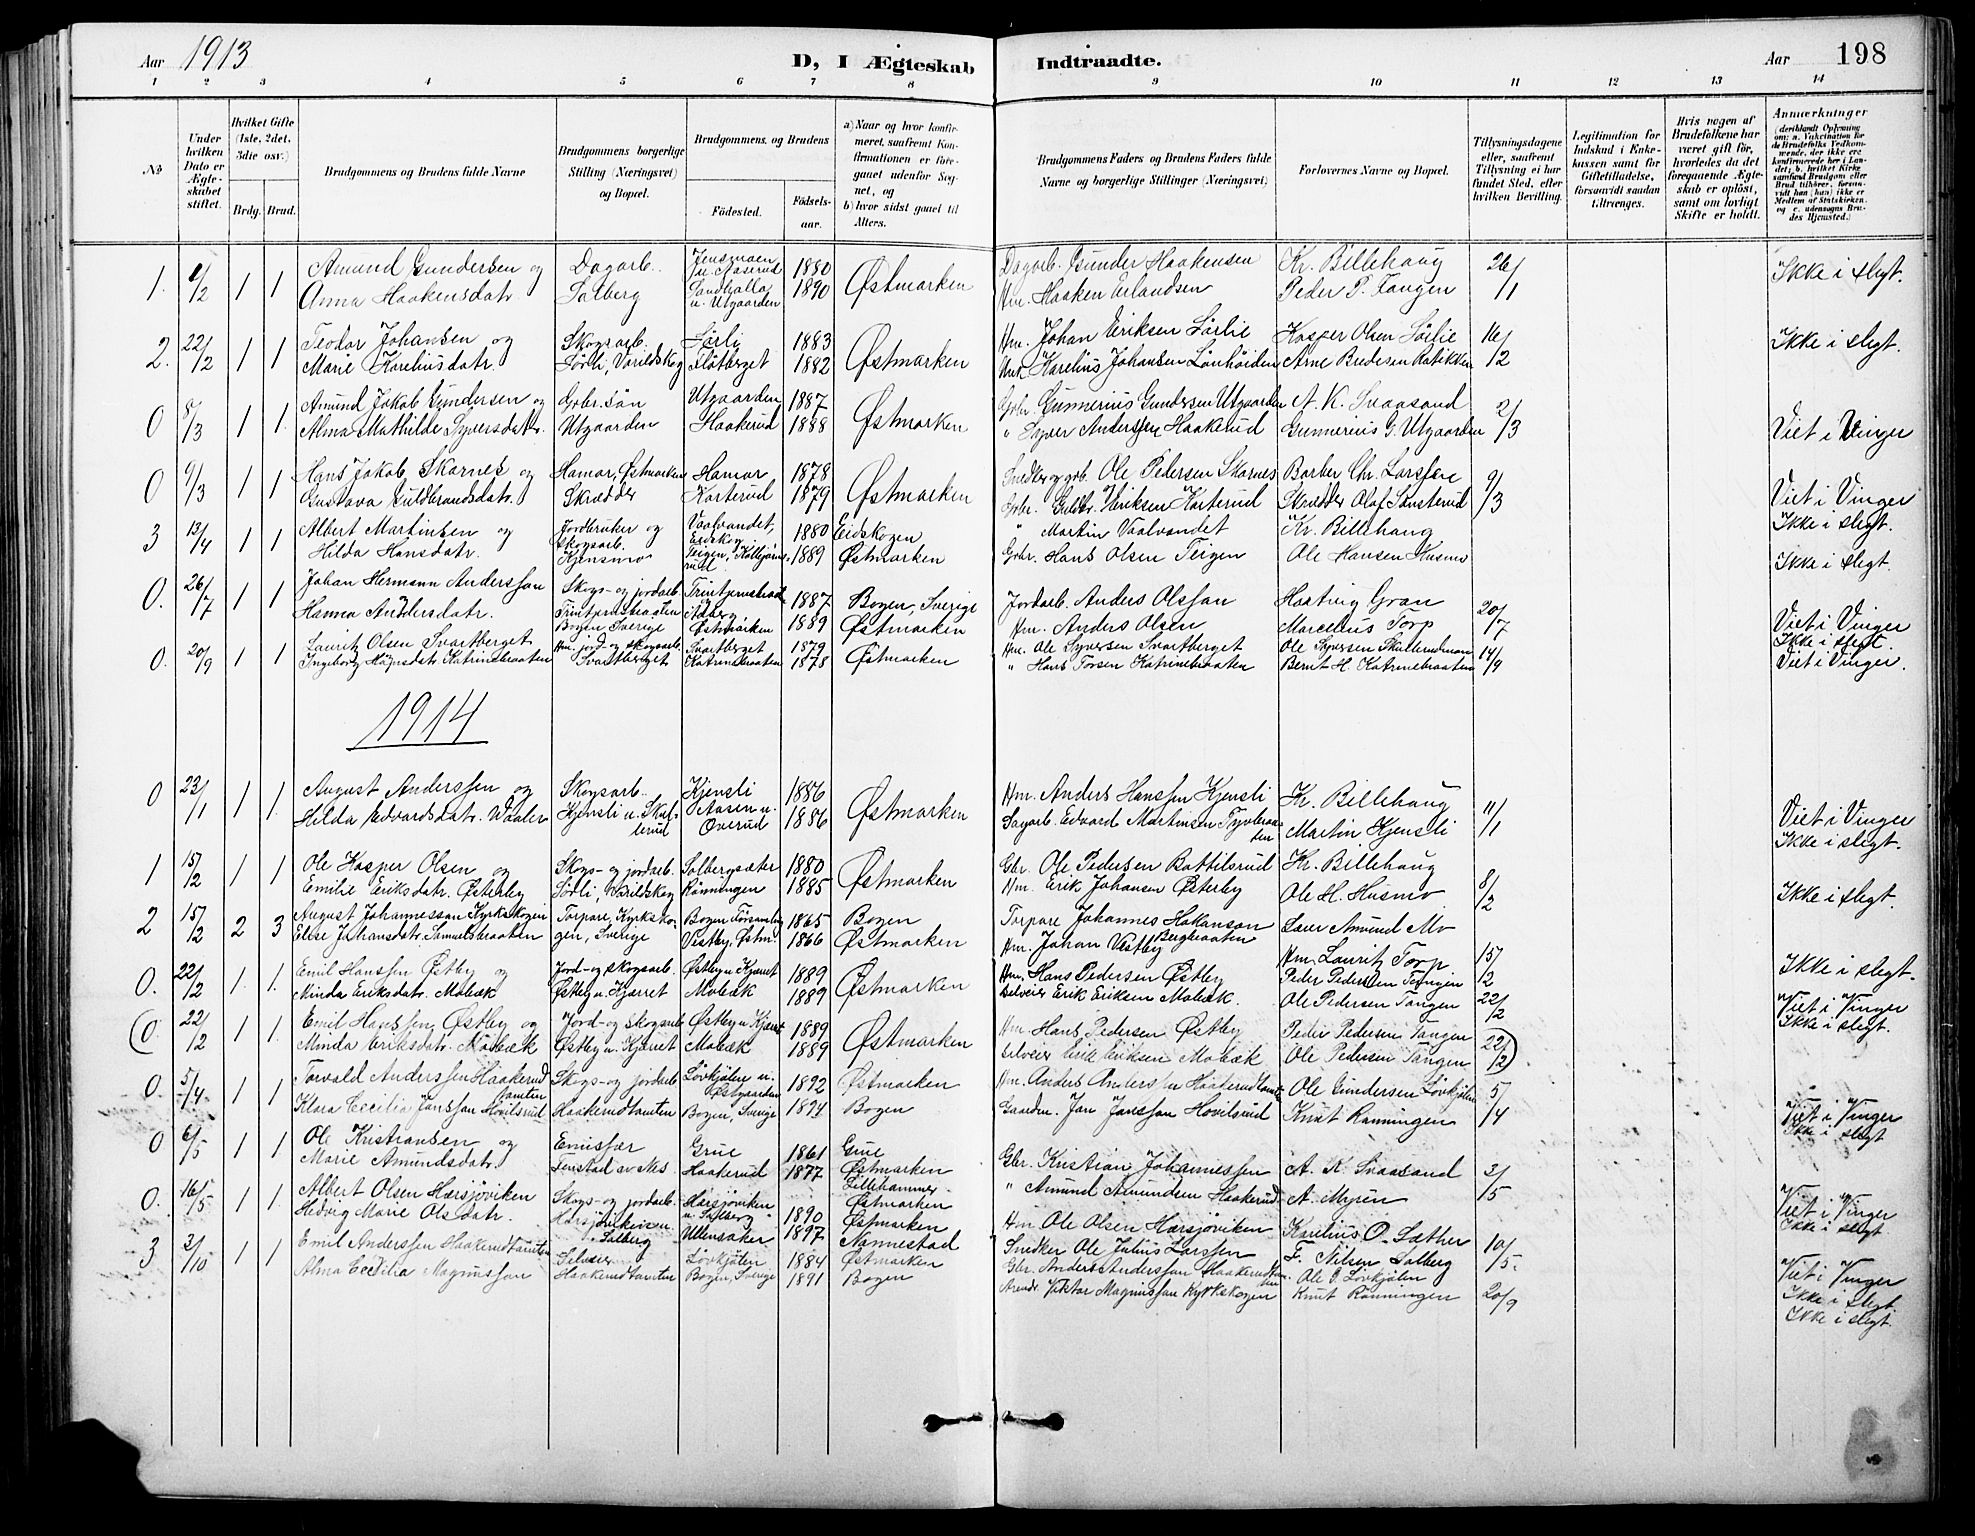 Aar 1913 D, I Ægteskab Indtraadte. Aar 198
1 2 3 4 5 6 7 8 9 10 11 12 13 14
No
Under hvilken Dato er Ægteskabet stiftet.
Hvilket Gifte (1ste, 2det, 3die osv.)
Brdg. Brud.
Brudgommens og Brudens fulde Navne
Brudgommens borgerlige Stilling (Næringsvei) og Bopæl.
Brudgommens og Brudens
Fødested.
Fødselsaar.
a) Naar og hvor konfirmeret, saafremt Konfirmationen er foregaaet udenfor Sognet, og
b) hvor sidst gaaet til Alters.
Brudgommens Faders og Brudens Faders fulde Navne og borgerlige Stillinger (Næringsvei)
Forlovernes Navne og Bopæl.
Tillysningsdagene eller, saafremt Tillysning ei har fundet Sted, efter hvilken Bevilling.
Legitimation for Indskud i Enkekassen samt for Giftetilladelse, forsaavidt saadan tiltrænges.
Hvis nogen af Brudefolkene har været gift før, hvorledes da det foregaaende Ægteskab er opløst, samt om lovligt Skifte er holdt.
Anmærkninger
1. 6/2 1 1 Amund Gundersen og Dagarb. 1880 Østmarken Dagarb. Gunder Haakensen Kr. Billehaug 26/1 Ikke i slegt.
Anna Haakensdatr. Solberg u. Utgaarden 1890 Hm. Haaken Erlandsen Peder P. Tangen
2. 22/2 1 1 Teodor Johansen og Skogsarb. Sörli 1883 Østmarken Hm. Johan Eriksen Sörlie Kasper Olsen Sörlie 16/2 Ikke i slegt.
Marie Kareliusdatr. Sörli, Varildskog Slötberget 1882 Karelius Johansen Lönhöiden Arne Bredesen
0 8/3 1 1 Amund Jakob Gundersen og Gbr. sön Utgaarden 1887 Østmarken Gbr. Gunnerius Gundersen Utgaarden A. K. Svaasand 2/3 Viet i Vinger
Alma Mathilde Syversdatr. Utgaarden Haakerud 1888 " Syver Anderssen Haakerud Gunnerius G. Utgaarden
0 9/3 1 1 Hans Jakob Skarnes og Hamar, Østmarken Hamar 1878 Østmarken Ole Pedersen Skarnes Barber Chr. Larssen 9/3 Viet i Vinger
Gustava Guldbrandsdatr. Skrædder Karterud 1879 Gbr. Guldbr. Henriksen Karterud Skrædder Olaf Ikke i slegt.
3 13/4 1 1 Albert Martinsen og Jordbruker og skogsarb. Vaalvandet, Eidskog 1880 Eidskogen " Martin Vaalvandet Kr. Billehaug
Hilda Hansdatr. Kjensmo Teigen, 1889 Østmarken Gbr. Hans Olsen Teigen Ole Hansen Husmo Ikke i slegt.
0. 26/7 1 1 Johan Hermann Anderssen Skogs- og jordarb. 1887 Bogen, Sverige Jordarb. Anders Olsson Hartvig Gran 20/7 Viet i Vinger
Hanna Andersdatr. Bogen Sverige Østmarken 1889 Østmarken Hm. Anders Olsen Marcelius Torp Ikke i slegt.
0. 20/9 1 1 Lauritz Olsen Svartberget Hm. jord- og skogsarb. Svartberget 1879 Østmarken Hm. Ole Syversen Svartberget Ole Syversen 14/9 Viet i Vinger.
Ingeborg Hansdatr. Katrinebraaten Svartberget Katrinebraaten 1878 " Hans Torsen Katrinebraaten Bernt H. Katrinebraaten
1914
0 23/1 1 1 August Anderssen og Skogsarb. Kjensli 1886 Østmarken Hm. Anders Hanssen Kjensli Kr. Billehaug 11/1 Viet i Vinger
Hilda Edvardsdatr. Vaaler Kjensli u. Skulsterud Aasen u. Overud 1886 Edvard Martinsen Martin Kjensli Ikke i slegt.
1 15/2 1 1 Ole Kasper Olsen og Skogs- og jordarb. Solbergsæter 1880 Østmarken Gbr. Ole Pedersen Kr. Billehaug 8/2 Ikke i slegt.
Emilie Eriksdatr. Österby Sörli, Varildskog Rönningen 1885 Hm. Erik Johansen Österby Ole H. Husmo
2 15/2 2 3 August Johannesson Kyrkskogen Torpare, Kyrkskogen, Sverige Bogen 1865 Bogen Torpare Johannes Hakanson Amund Mo 15/2 Ikke i slegt.
Elise Johansdatr. Samuelsbraaten Vestby, Østm. 1866 Østmarken Hm. Johan Vestby Hm. Lauritz Torp
0. 22/2 1. 1. Emil Hanssen Østby og Jord- og skogsarb. Østby u. Kjæret 1889 Østmarken Hm. Hans Pedersen Østby Peder Pedersen Tangen 22/2 Viet i Vinger
Minda Eriksdatr. Mobæk Østby u. Kjærret Mobæk 1889 Selveier Erik Eriksen Mobæk. Ole Pedersen Tangen Ikke i slegt.
(0 22/2 1 1. Emil Hanssen Østby og Jord- og skogsarb. Østby u. Kjæret 1889 Østmarken Hm. Hans Pedersen Østby Peder Pedersen Tangen 22/2)
Minda Eriksdatr. Mobæk Østby u. Kjærret Mobæk 1889 Selveier Erik Eriksen Mobæk Ole Pedersen Tangen
0. 5/4 1 1 Torvald Anderssen Haakerudtomten Skogs- og jordarb. Lövkjölen u. Østgaarden 1892 Østmarken Hm. Anders Anderssen Haakerudtomten Ole Gundersen Lövkjölen 5/4 Viet i Vinger
Klara Cecilia Janssan Hovilsrud Haakerudtomten Bogen, Sverige 1894 Bogen Gaardm. Jan Janssan Hovilsrud Knut Rönningen Ikke i slegt
0 6/5 1 1 Ole Kristiansen og Grue 1861 Grue Gbr. Kristian Johannessen A. K. Svaasand 3/5 Viet i Vinger
Marie Amundsdatr. Haakerud 1877 Østmarken " Amund Amundsen Haakerud A. Myren Ikke i slegt
Lillehammer
0. 16/5 1 1 Albert Olsen Harsjöviken Skogs- og jordarb. Harsjöviken u. Solberg 1890 Østmarken Hm Ole Olsen Harsjöviken Karelius O. Sæther 10/5. Viet i Vinger
Hedvig Marie Olsdatr. Harsjöviken u. Solberg Ullensaker 1897 Nannestad Snedker Ole Julius Larssen F. Nilsen Solberg Ikke i slegt.
3 3/10 1 1 Emil Anderssen Haakerudtomten Selveier Lövkjölen 1884 Østmarken Gbr. Anders Anderssen Haakerudtomten Ole G. Lövkjölen 20/9 Ikke i slegt.
Alma Cecilia Magnussan Haakerudtomten Bogen, Sverige 1891 Bogen Viktor Magnussan Kyrkskogen Knut Rönningen